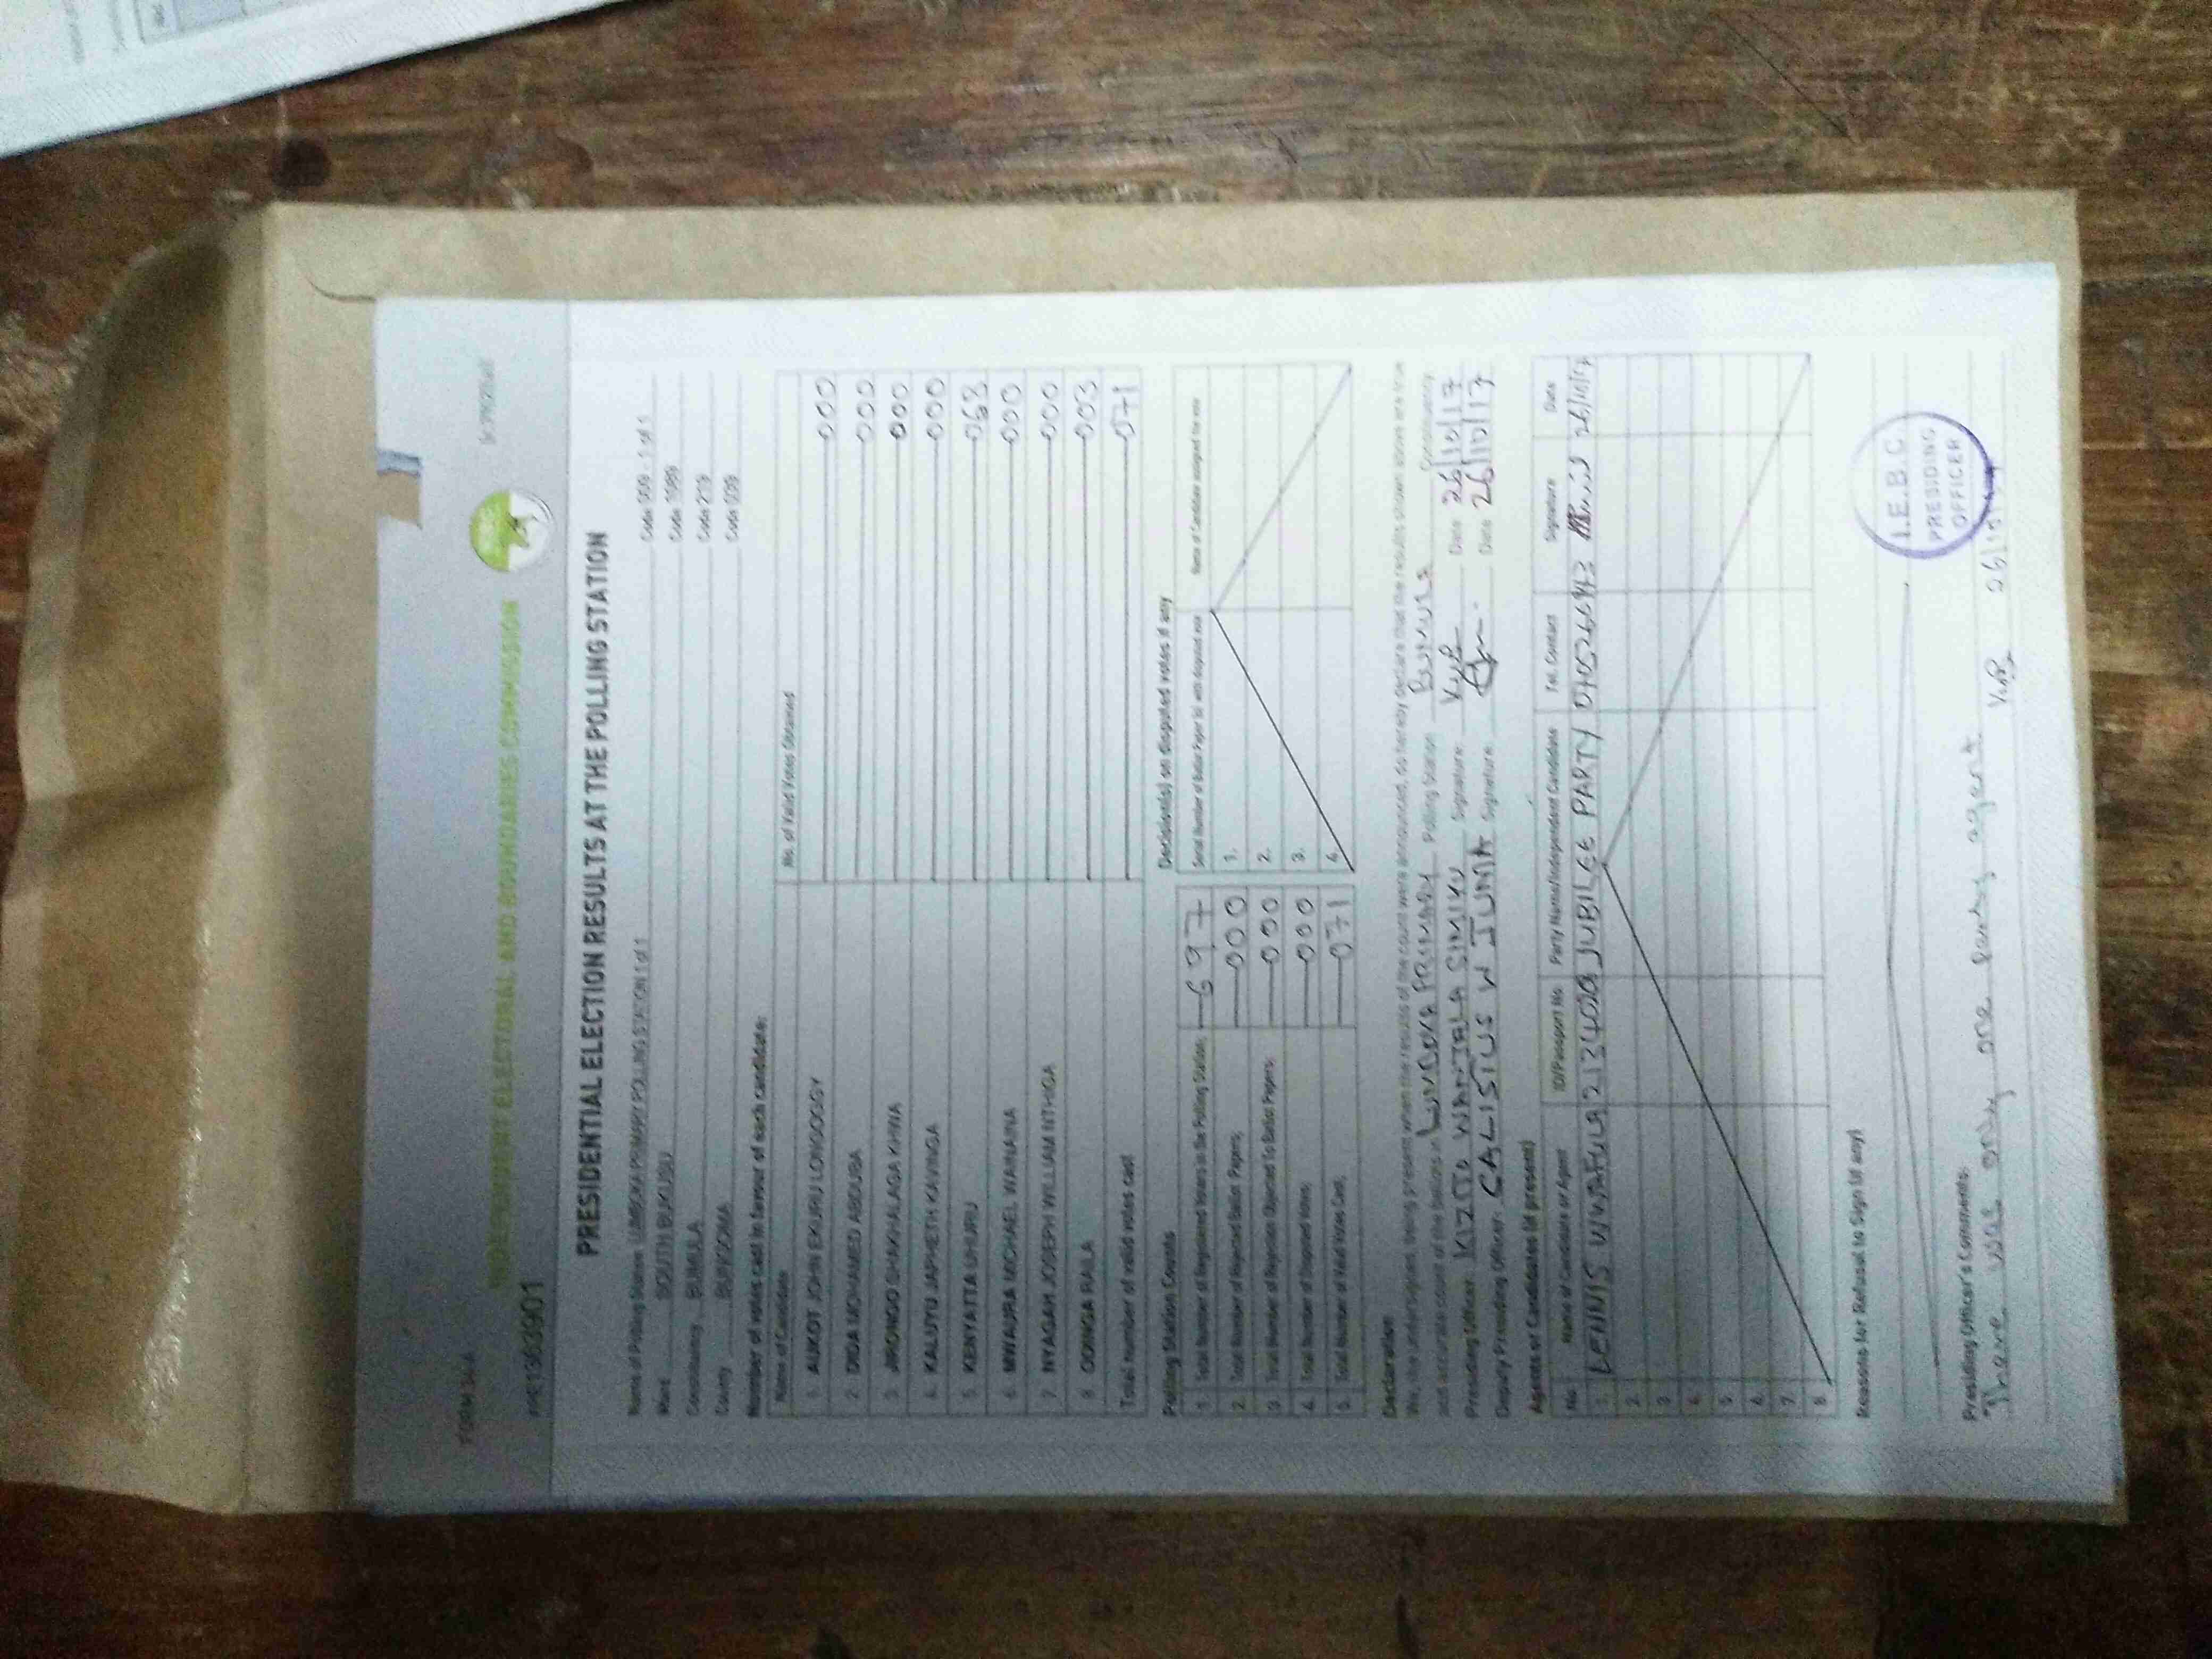 FORM 34A
INDEPENDENT ELECTORAL AND BOUNDARIES COMMISSION
PRESIDENTIAL ELECTION RESULTS AT THE POLLING STATION
Name of Polling Station LUMBOKA PRIMARY POLLING STATION 1 of 1 Code 009 - 1 of 1
Ward SOUTH BUKUSU Code 1089
Constituency BUMULA Code 219
County BUNGOMA Code 039
Number of votes cast in favour of each candidate:
Name of Candidate No. of Valid Votes Obtained
1. AUKOT JOHN EKURU LONGOGGY 000
2. DIDA MOHAMED ABDUBA 000
3. JIRONGO SHAKHALAGA KHWA 000
4. KALUYU JAPHETH KAVINGA 000
5. KENYATTA UHURU 068
6. MWAURA MICHAEL WAINAINA 000
7. NYAGAH JOSEPH WILLIAM NTHIGA 000
8. ODINGA RAILA 003
Total number of valid votes cast 071
Polling Station Counts
1. Total Number of Registered Voters in the Polling Station; 697
2. Total Number of Rejected Ballot Papers; 000
3. Total Number of Rejection Objected To Ballot Papers; 000
4. Total Number of Disputed Votes; 000
5. Total Number of Valid Votes Cast; 071
Decision(s) on disputed votes if any
Serial Number of Ballot Paper (s) with disputed vote Name of Candidate assigned the vote
1.
2.
3.
4.
Declaration
We, the undersigned, being present when the results of the count were announced, do hereby declare that the results shown above are true
and accurate count of the ballots in LUMBOKA PRIMARY Polling Station BUMULA Constituency.
Presiding Officer: KIZITO WANJALA SIMIYU Signature Date 26/10/17
Deputy Presiding Officer: CALISTUS W JUMA Signature Date 26/10/17
Agents or Candidates (if present)
No. Name of Candidate or Agent ID/Passport No Party Name/Independent Candidate Tel. Contact Signature Date
1. DENNIS WWAFULA JUBILEE PARTY 26/10/17
2
3
4
5
6
7
8
Reasons for Refusal to Sign (if any)
I.E.B.C.
PRESIDING
OFFICER
Presiding Officer's Comments:
There was only one party agent